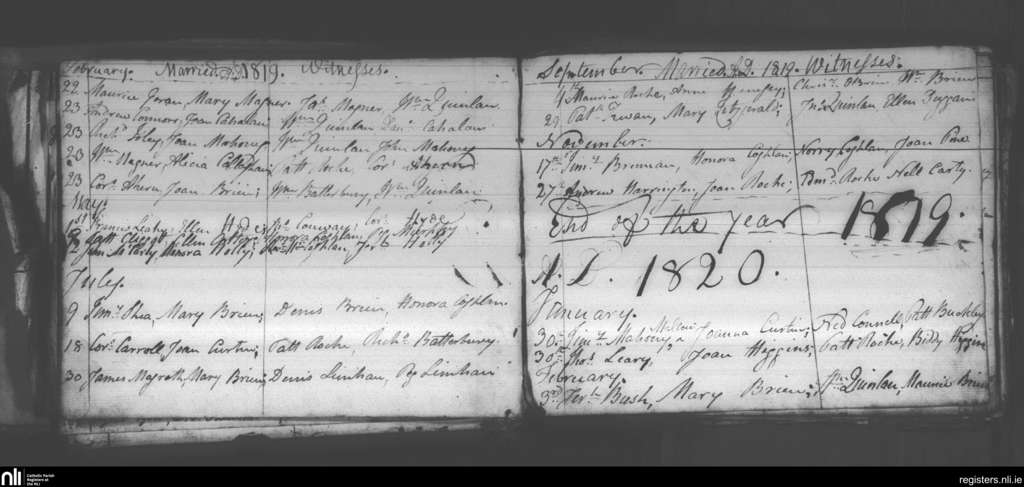 February. Married A.D. 1819. Witnesses.
22 Maurice Mary Mapner. Jas. Mapner, Wm. Quinlan
23 Andrew Connors, Joan Cahalan; Wm. Quinlan Danl. Cahalan
23 Richd. Foley, Joan Mahony; Wm. Quinlan John Mahony
23 Wm. Mapner, Alicia Patt Roche, Corns. Ahern
23 Corns. Ahern, Joan Brien; Wm. Battsbury, Wm. Quinlan
May.
Francis Leahy, Ellen Hyde; Conway, Corns. Hyde
Patt Ellen
Jno. McCarty, Honora Holly; Holly
July.
9 Timy. Shea, Mary Brien; Denis Brien, Honora Coghlan
18 Corns. Carroll, Joan Curtin; Patt Roche, Richd. Battersbury.
30, James Magrath, Mary Brien; Denis Linihan, Peg Linihan
September. Married A.D. 1819. Witnesses.
4th Maurice Roche, Anne Dempsey; Christr. OBrien Wm. Brien
29 Patk. Mary Fitzgerald; Jno. Quinlan Ellen
November.
17th Timy. Brennan, Honora Coghlan; Norry Coghlan, Joan Pine
27th Andrew Harrington, Joan Roche; Edmd. Roche Nell Carty.
End of the year 1819.
A.D. 1820.
January.
30th Timy. Mahony, Joanna Curtin; Ned Connell, Patt Buckley
30th Thos. Leary, Joan Higgins; Patt Roche, Biddy Higgins
February.
3rd Jerh. Bush, Mary Brien; Wm. Quinlan, Maurice Brien
nli
Catholic Parish
Registers at
the NLI
registers.nli.ie